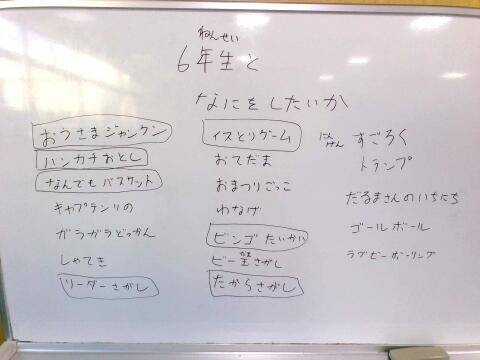 6年生と
ねんせい
なにをしたいか
おうさまジャンケン
ハンカチおとし
なんでもバスケット
キャプテンリの
ガラガラどっかん
しゃてき
リーダーさがし
イスとりゲーム
おてだま
おまつりごっこ
わなげ
ビンゴたいかい
ビー玉さがし
だま
たからさがし
にんげん
すごろく
トランプ
だるまさんのいちにち
ゴールボール
ラグビーボーリング